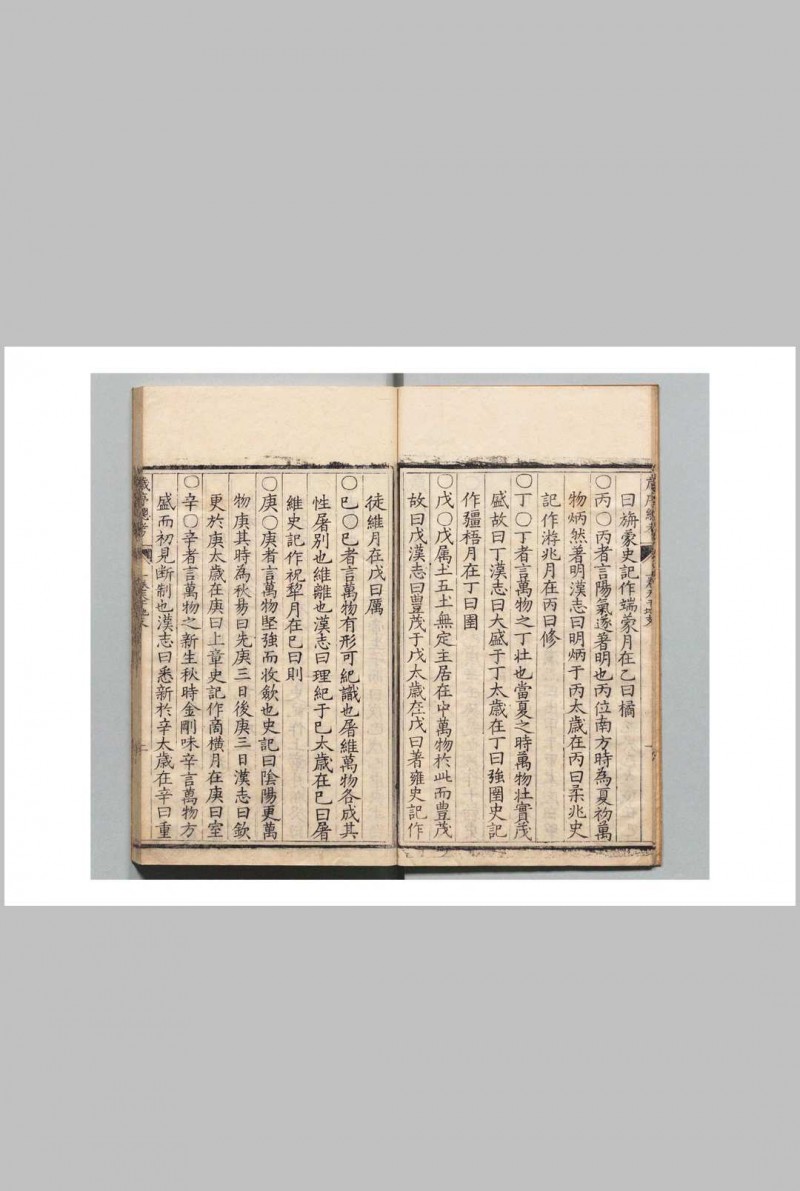 曰旃蒙史記作端蒙月在乙曰橘
○丙○丙者言陽氣遂著明也丙位南方時為夏初萬
物炳然著明漢志曰明炳于丙太歲在丙曰柔兆史
記作游兆月在丙曰修
○丁○丁者言萬物之丁壯也當夏之時萬物壯實茂
盛故曰丁漢志曰大盛于丁太歲在丁曰強圉史記
作彊梧月在丁曰圉
○戊○戊属土五土無定主居在中萬物於此而豊茂
故曰戊漢志曰豊茂于戊太歲在戊曰著雍史記作
徒維月在戊曰厲
○巳○巳者言萬物有形可紀識也屠維萬物各成其
性屠別也維離也漢志曰理紀于巳太歲在巳曰屠
維史記作祝犁月在巳曰則
○庚○庚者言萬物堅強而收斂也史記曰陰陽更萬
物庚其時為秋易曰先庚三日後庚三日漢志曰斂
更於庚太歲在庚曰上章史記作商橫月在庚曰室
○辛○辛者言萬物之新生秋時金剛味辛言萬物方
盛而初見斷制也漢志曰悉新於辛太歲在辛曰重
歲序總考